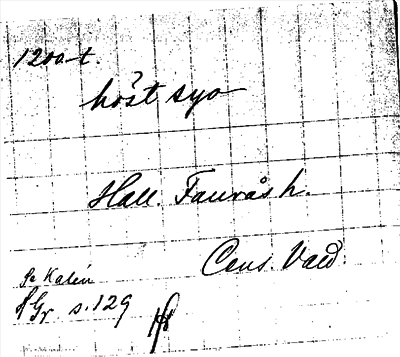 1200-t.
höst syo
Hall. Faurås h.
Cens. Vald.
Se Kalén
Gr s. 129